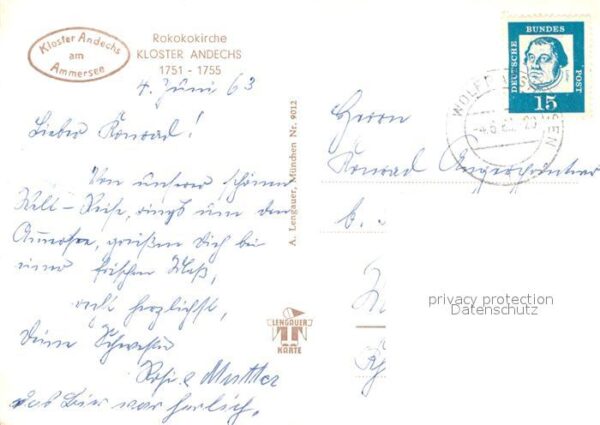 Kloster Andechs
am
Ammersee
Rokokokirche
KLOSTER ANDECHS
1751 - 1755
4. Juni 63
Lieber Konrad!
Von unserer schönen
Reise, rings um den
Ammersee, grüßen Dich bei
einer frischen Maß,
recht herzlichst,
Deine Schwester
Rosi & Mutter
das Bier war herlich.
A. Lengauer, München Nr. 9012
LENGAUER
KARTE
DEUTSCHE
BUNDES
POST
15
Herrn
Konrad
b.
privacy protection
Datenschutz